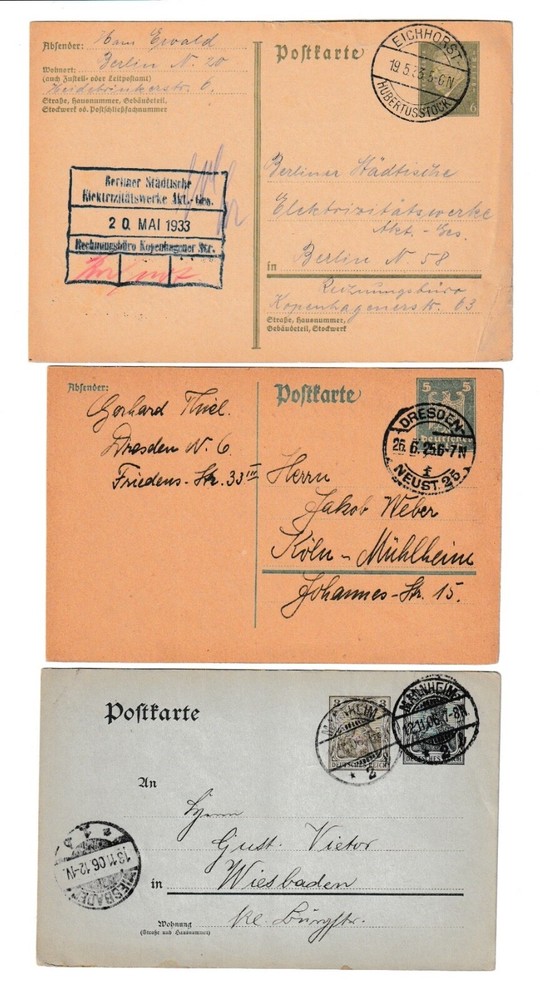 Absender: Hans Ewald
Wohnort: Berlin N. 20
(auch Zustell- oder Leitpostamt)
Heidebrinkerstr. 6.
Straße, Hausnummer, Gebäudeteil,
Stockwerk od. Postschließfachnummer
Postkarte
EICHHORST
19.5.33.5-6N
HUBERTUSSTOCK
Berliner Städtische
Elektrizitätswerke Akt.-Ges.
20. MAI 1933
Rechnungsbüro Kopenhagener Str.
Berliner Städtische
Elektrizitätswerke
Akt.-Ges.
in Berlin N. 58
Kopenhagenerstr. 63
Straße, Hausnummer,
Gebäudeteil, Stockwerk
Absender:
Gerhard Thiel.
Dresden N. 6
Friedens-Str. 33 III
Postkarte
5 5
DRESDEN-
26.6.25.6-7N
NEUST. 25
Herrn
Jakob Weber
Köln-Mühlheim
Johannes-Str. 15.
Postkarte
3 3
DEUTSCHES REICH
MANNHEIM
* 2
MANNHEIM
12.11.06.7-8N
* 2
An
Herrn
Gust. Vietor
in Wiesbaden
kl. Burgstr.
Wohnung
(Straße und Hausnummer)
WIESBADEN
13.11.06.12-1V